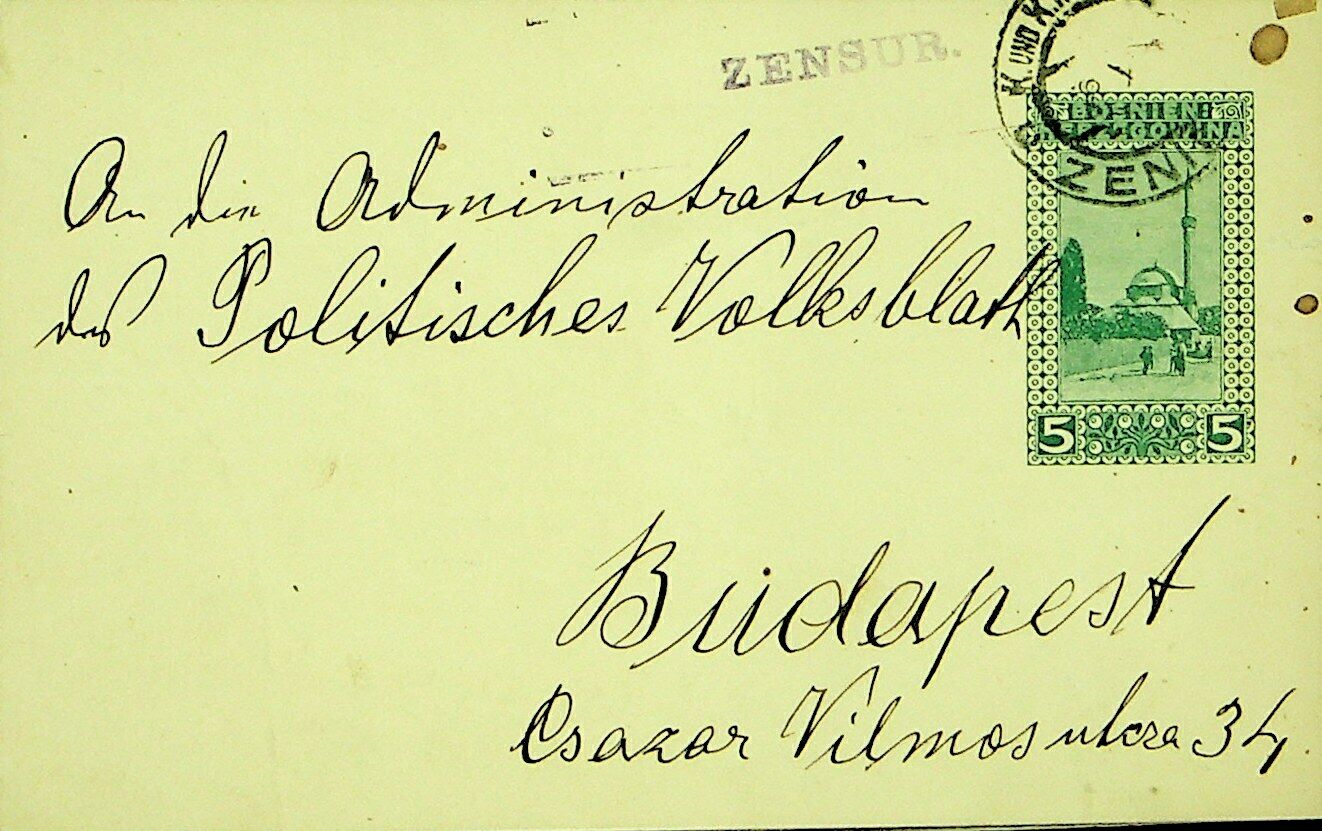 ZENSUR.
K. UND K.
ZENI
HERZEGOWINA
An die Administration
des Politisches Volksblatt
5 5
Budapest
Csazar Vilmos utcza 34